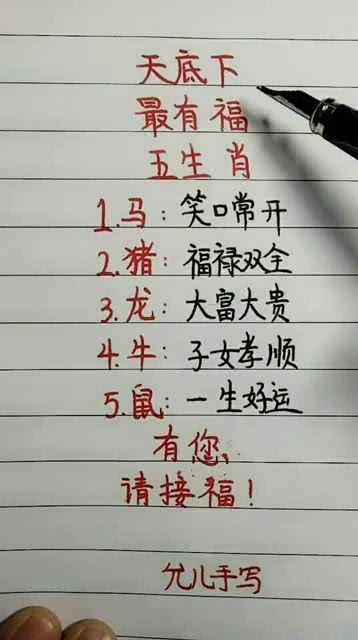 天底下
最有福
五生肖
1.马：笑口常开
2.猪：福禄双全
3.龙：大富大贵
4.牛：子女孝顺
5.鼠：一生好运
有您、
请接福！
允儿手写